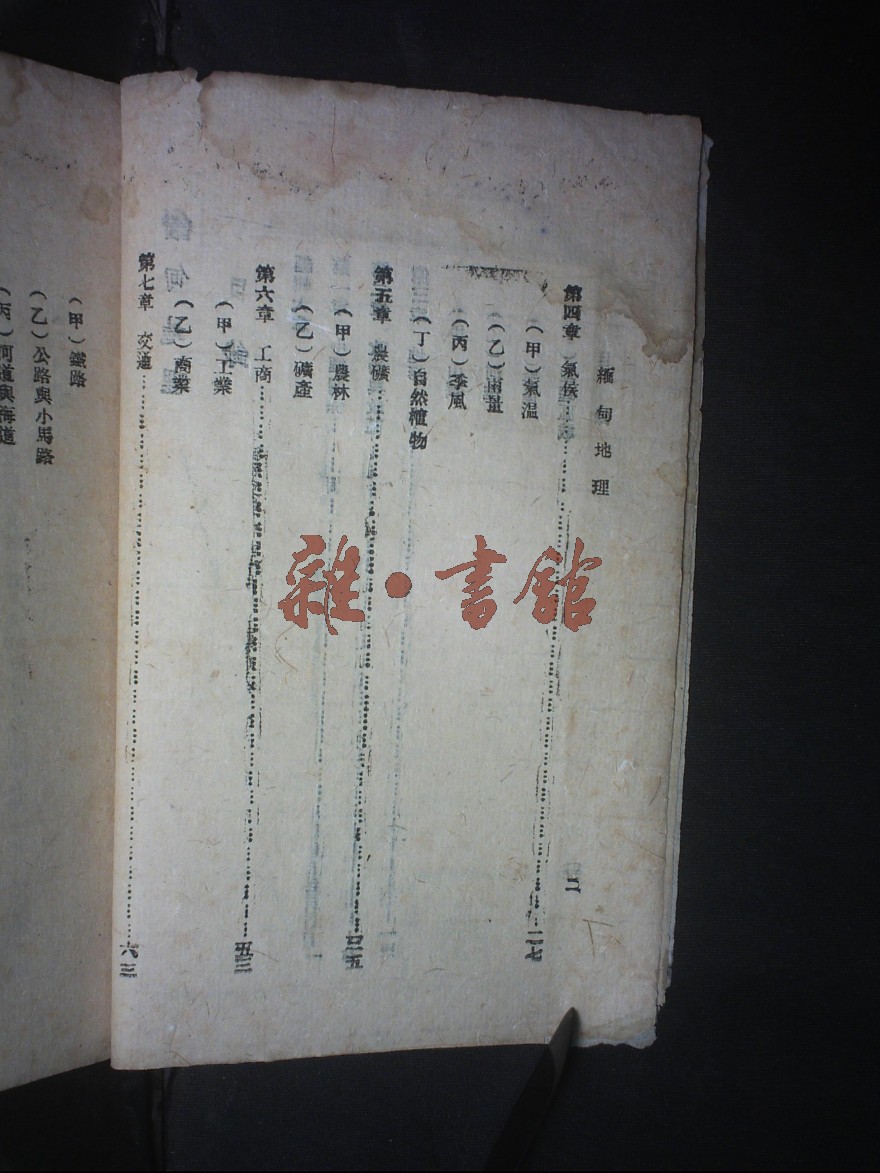 緬甸地理
二
第四章 氣候……二七
（甲）氣温
（乙）雨量
（丙）季風
（丁）自然植物
第五章 農礦……
（甲）農林
（乙）礦產
第六章 工商……五三
（甲）工業
（乙）商業
第七章 交通……六三
（甲）鐵路
（乙）公路與小馬路
（丙）河道與海道
雜·書館